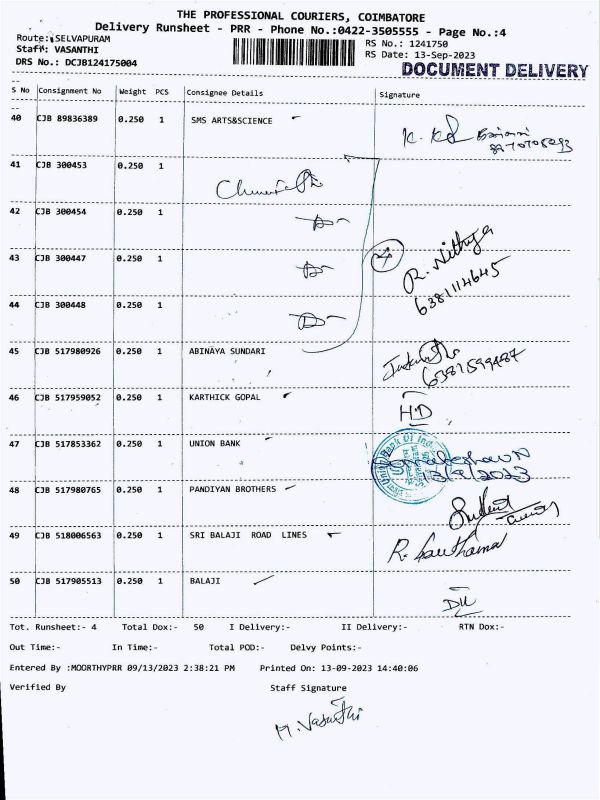 THE PROFESSIONAL COURIERS, COIMBATORE
Delivery Runsheet - PRR - Phone No.:0422-3505555 - Page No.:4
Route: SELVAPURAM
Staff: VASANTHI
DRS No.: DCJB124175004
RS No.: 1241750
RS Date: 13-Sep-2023
DOCUMENT DELIVERY
S No Consignment No Weight PCS Consignee Details Signature
40 CJB 89836389 0.250 1 SMS ARTS&SCIENCE
41 CJB 300453 0.250 1
42 CJB 300454 0.250 1
43 CJB 300447 0.250 1
R. Nithya
6381114645
44 CJB 300448 0.250 1
45 CJB 517980926 0.250 1 ABINAYA SUNDARI
6381599487
46 CJB 517959052 0.250 1 KARTHICK GOPAL
H.D
47 CJB 517853362 0.250 1 UNION BANK
13/9/2023
48 CJB 517980765 0.250 1 PANDIYAN BROTHERS
49 CJB 518006563 0.250 1 SRI BALAJI ROAD LINES
50 CJB 517905513 0.250 1 BALAJI
Tot. Runsheet:- 4 Total Dox:- 50 I Delivery:- II Delivery:- RTN Dox:-
Out Time:- In Time:- Total POD:- Delvy Points:-
Entered By :MOORTHYPRR 09/13/2023 2:38:21 PM Printed On: 13-09-2023 14:40:06
Verified By Staff Signature
M. Vasanthi